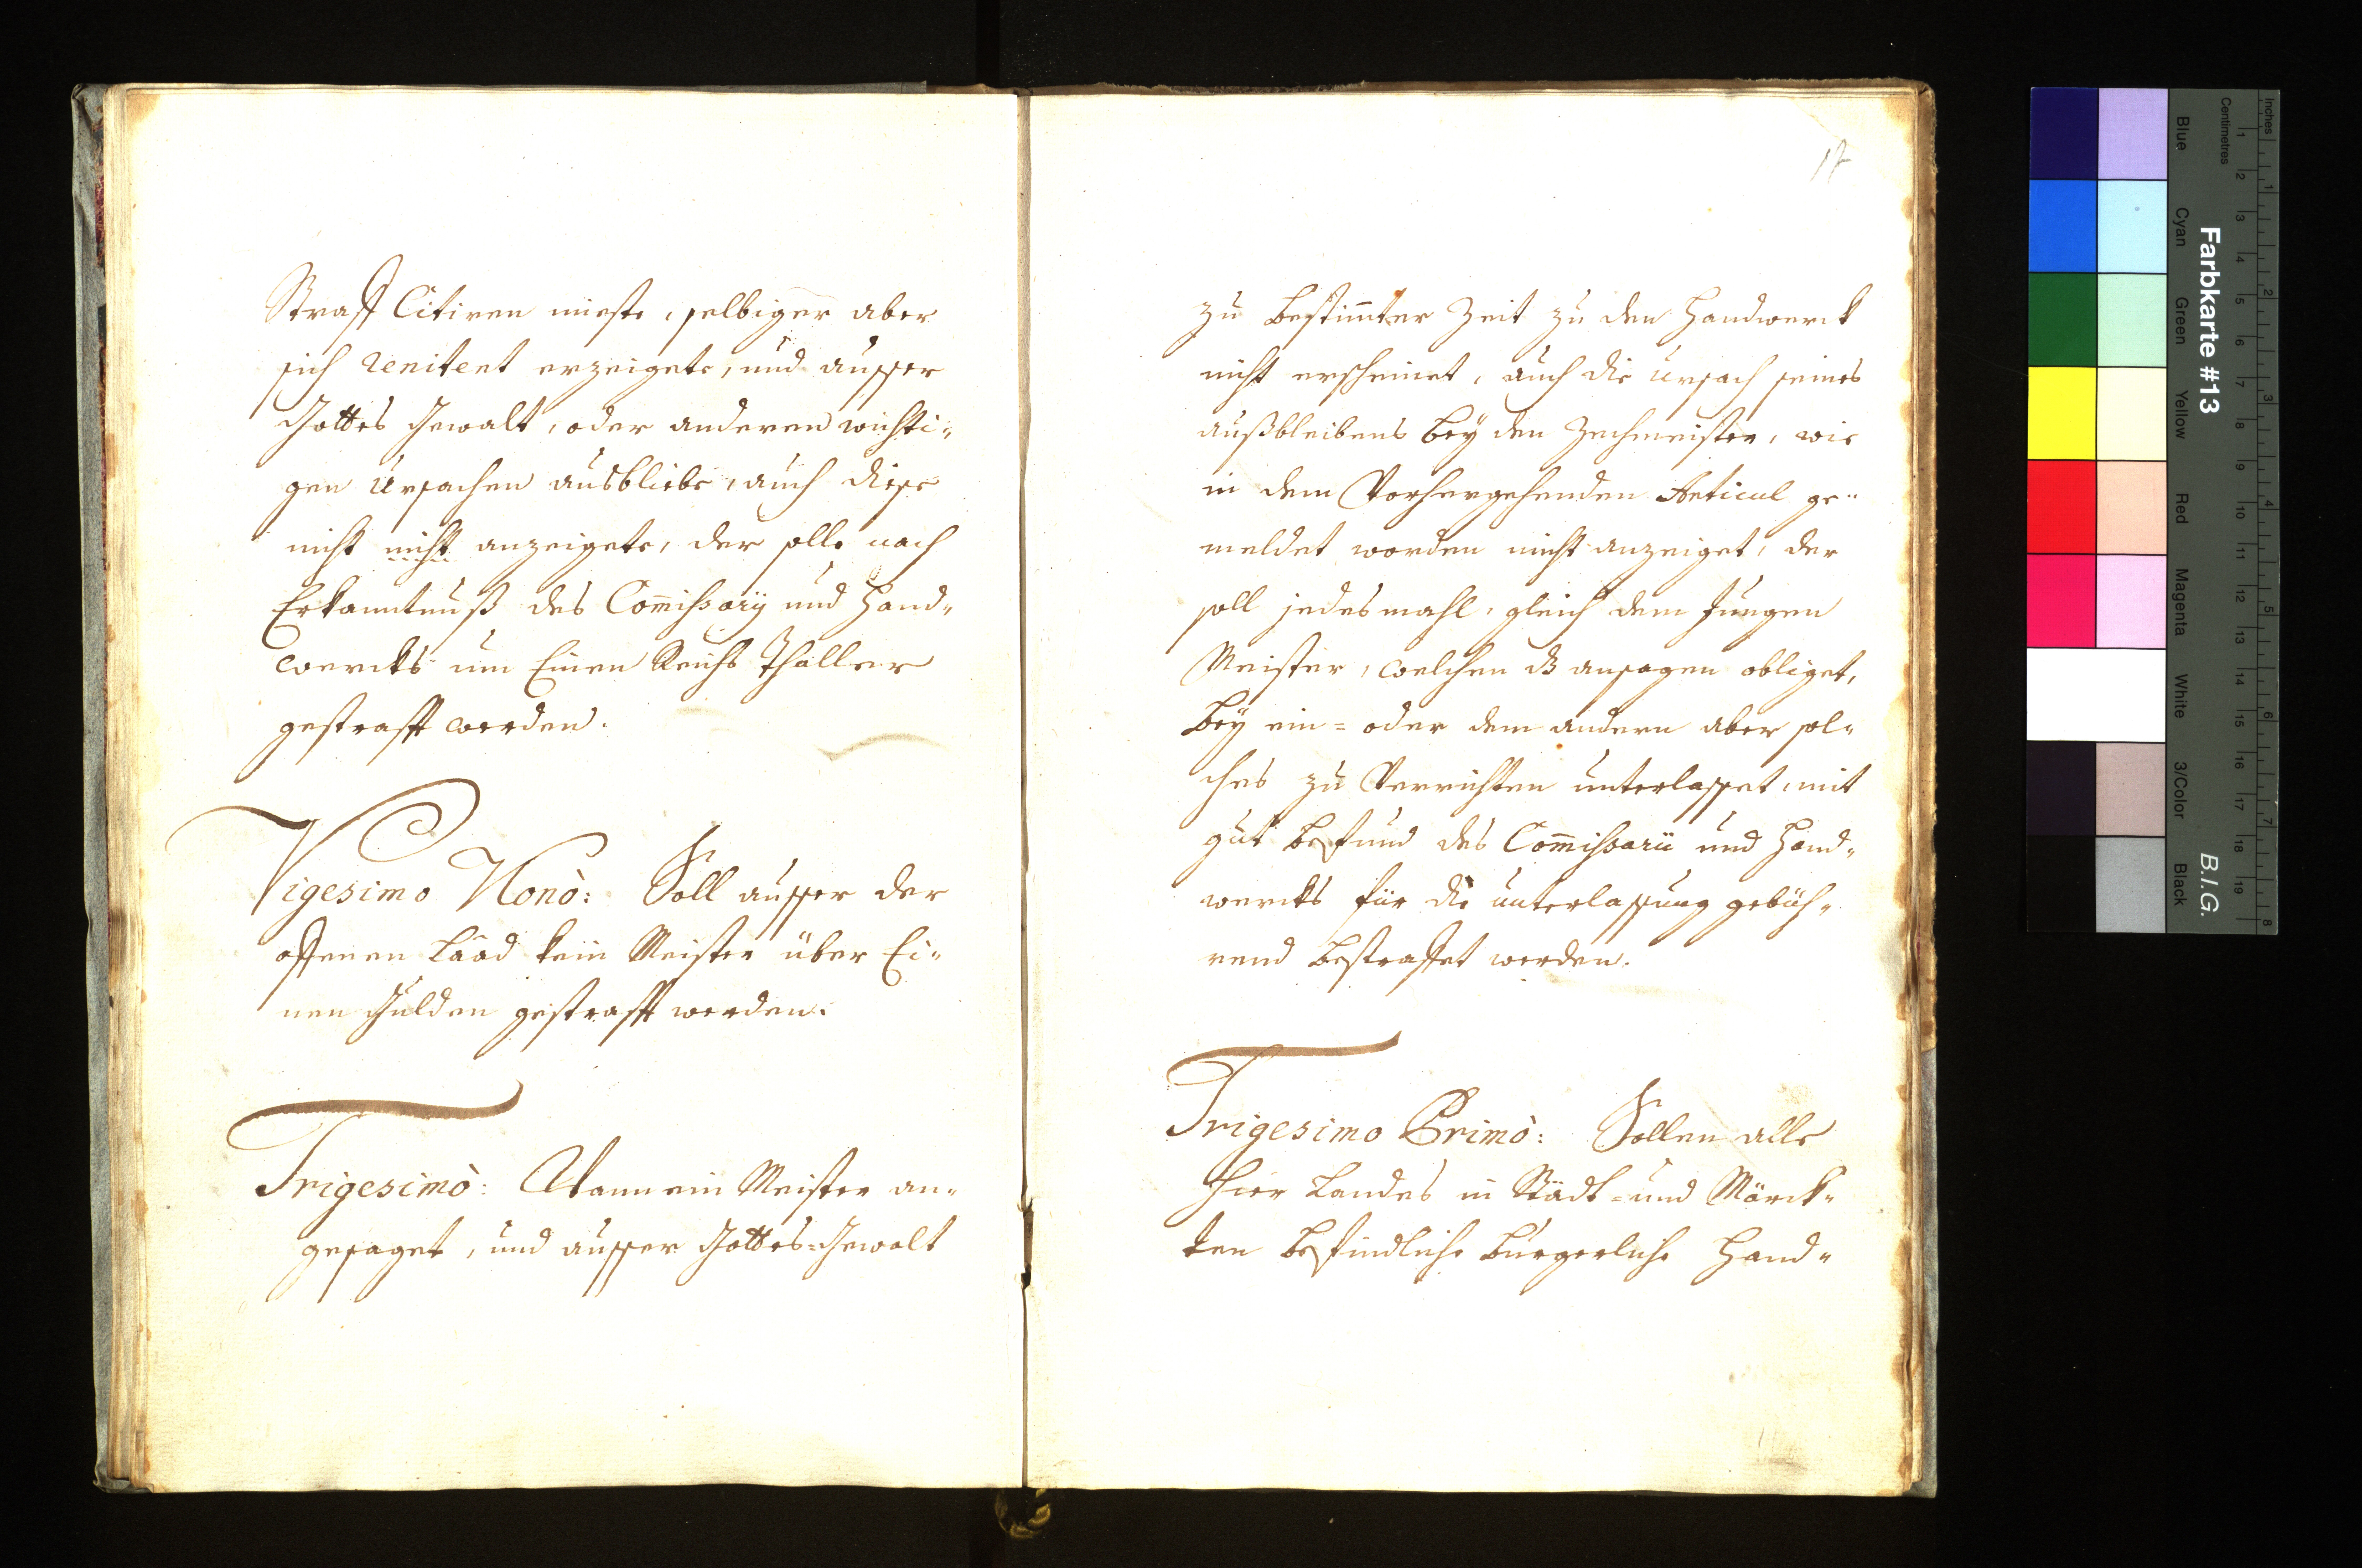 Straff Citiren mieste, selbiger aber
sich renitent erzeigete, und ausser
Gottes Gewalt, oder anderen wichti-
gen Ursachen ausbliebe, auch diese
nicht nicht anzeigete, der solle nach
Erkanntnuß des Com̅ißarÿ und Hand-
wercks um Einen Reichs Thaller
gestrafft werden.
Vigesimo Nonò: Soll ausser der
offenen Laad kein Meister über Ei-
nen Gulden gestrafft werden.
Trigesimò: Wann ein Meister an-
gesaget, und ausser Gottes-Gewalt
17
zu bestim̅ter Zeit zu den Handwerck
nicht erscheinet, auch die Ursach seines
außbleibens beÿ den Zechmeister, wie
in dem Vorhergehenden Articul ge-
meldet worden nicht anzeiget, der
soll jedesmahl, gleich dem Jungen
Meister, welchen das ansagen obliget,
beÿ ein- oder dem andern aber sol-
ches zu Verrichten unterlasset, mit
gut befund des Com̅ißarii und Hand-
wercks für die unterlassung gebüh-
rend bestraffet werden.
Trigesimo Primò: Sollen alle
hier Landes in Städt- und Märck-
ten befindliche burgerliche Hand-
Inches
Centimetres
Farbkarte #13
B.I.G.
Blue Cyan Green Yellow Red Magenta White 3/Color Black
1 2 3 4 5 6 7 8 9 10 11 12 13 14 15 16 17 18 19
1 2 3 4 5 6 7 8